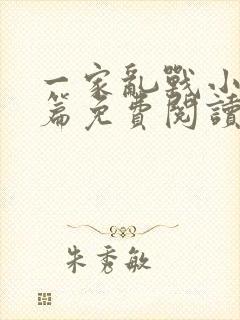 一家亂戰小
篇免費閱讀
朱秀敏